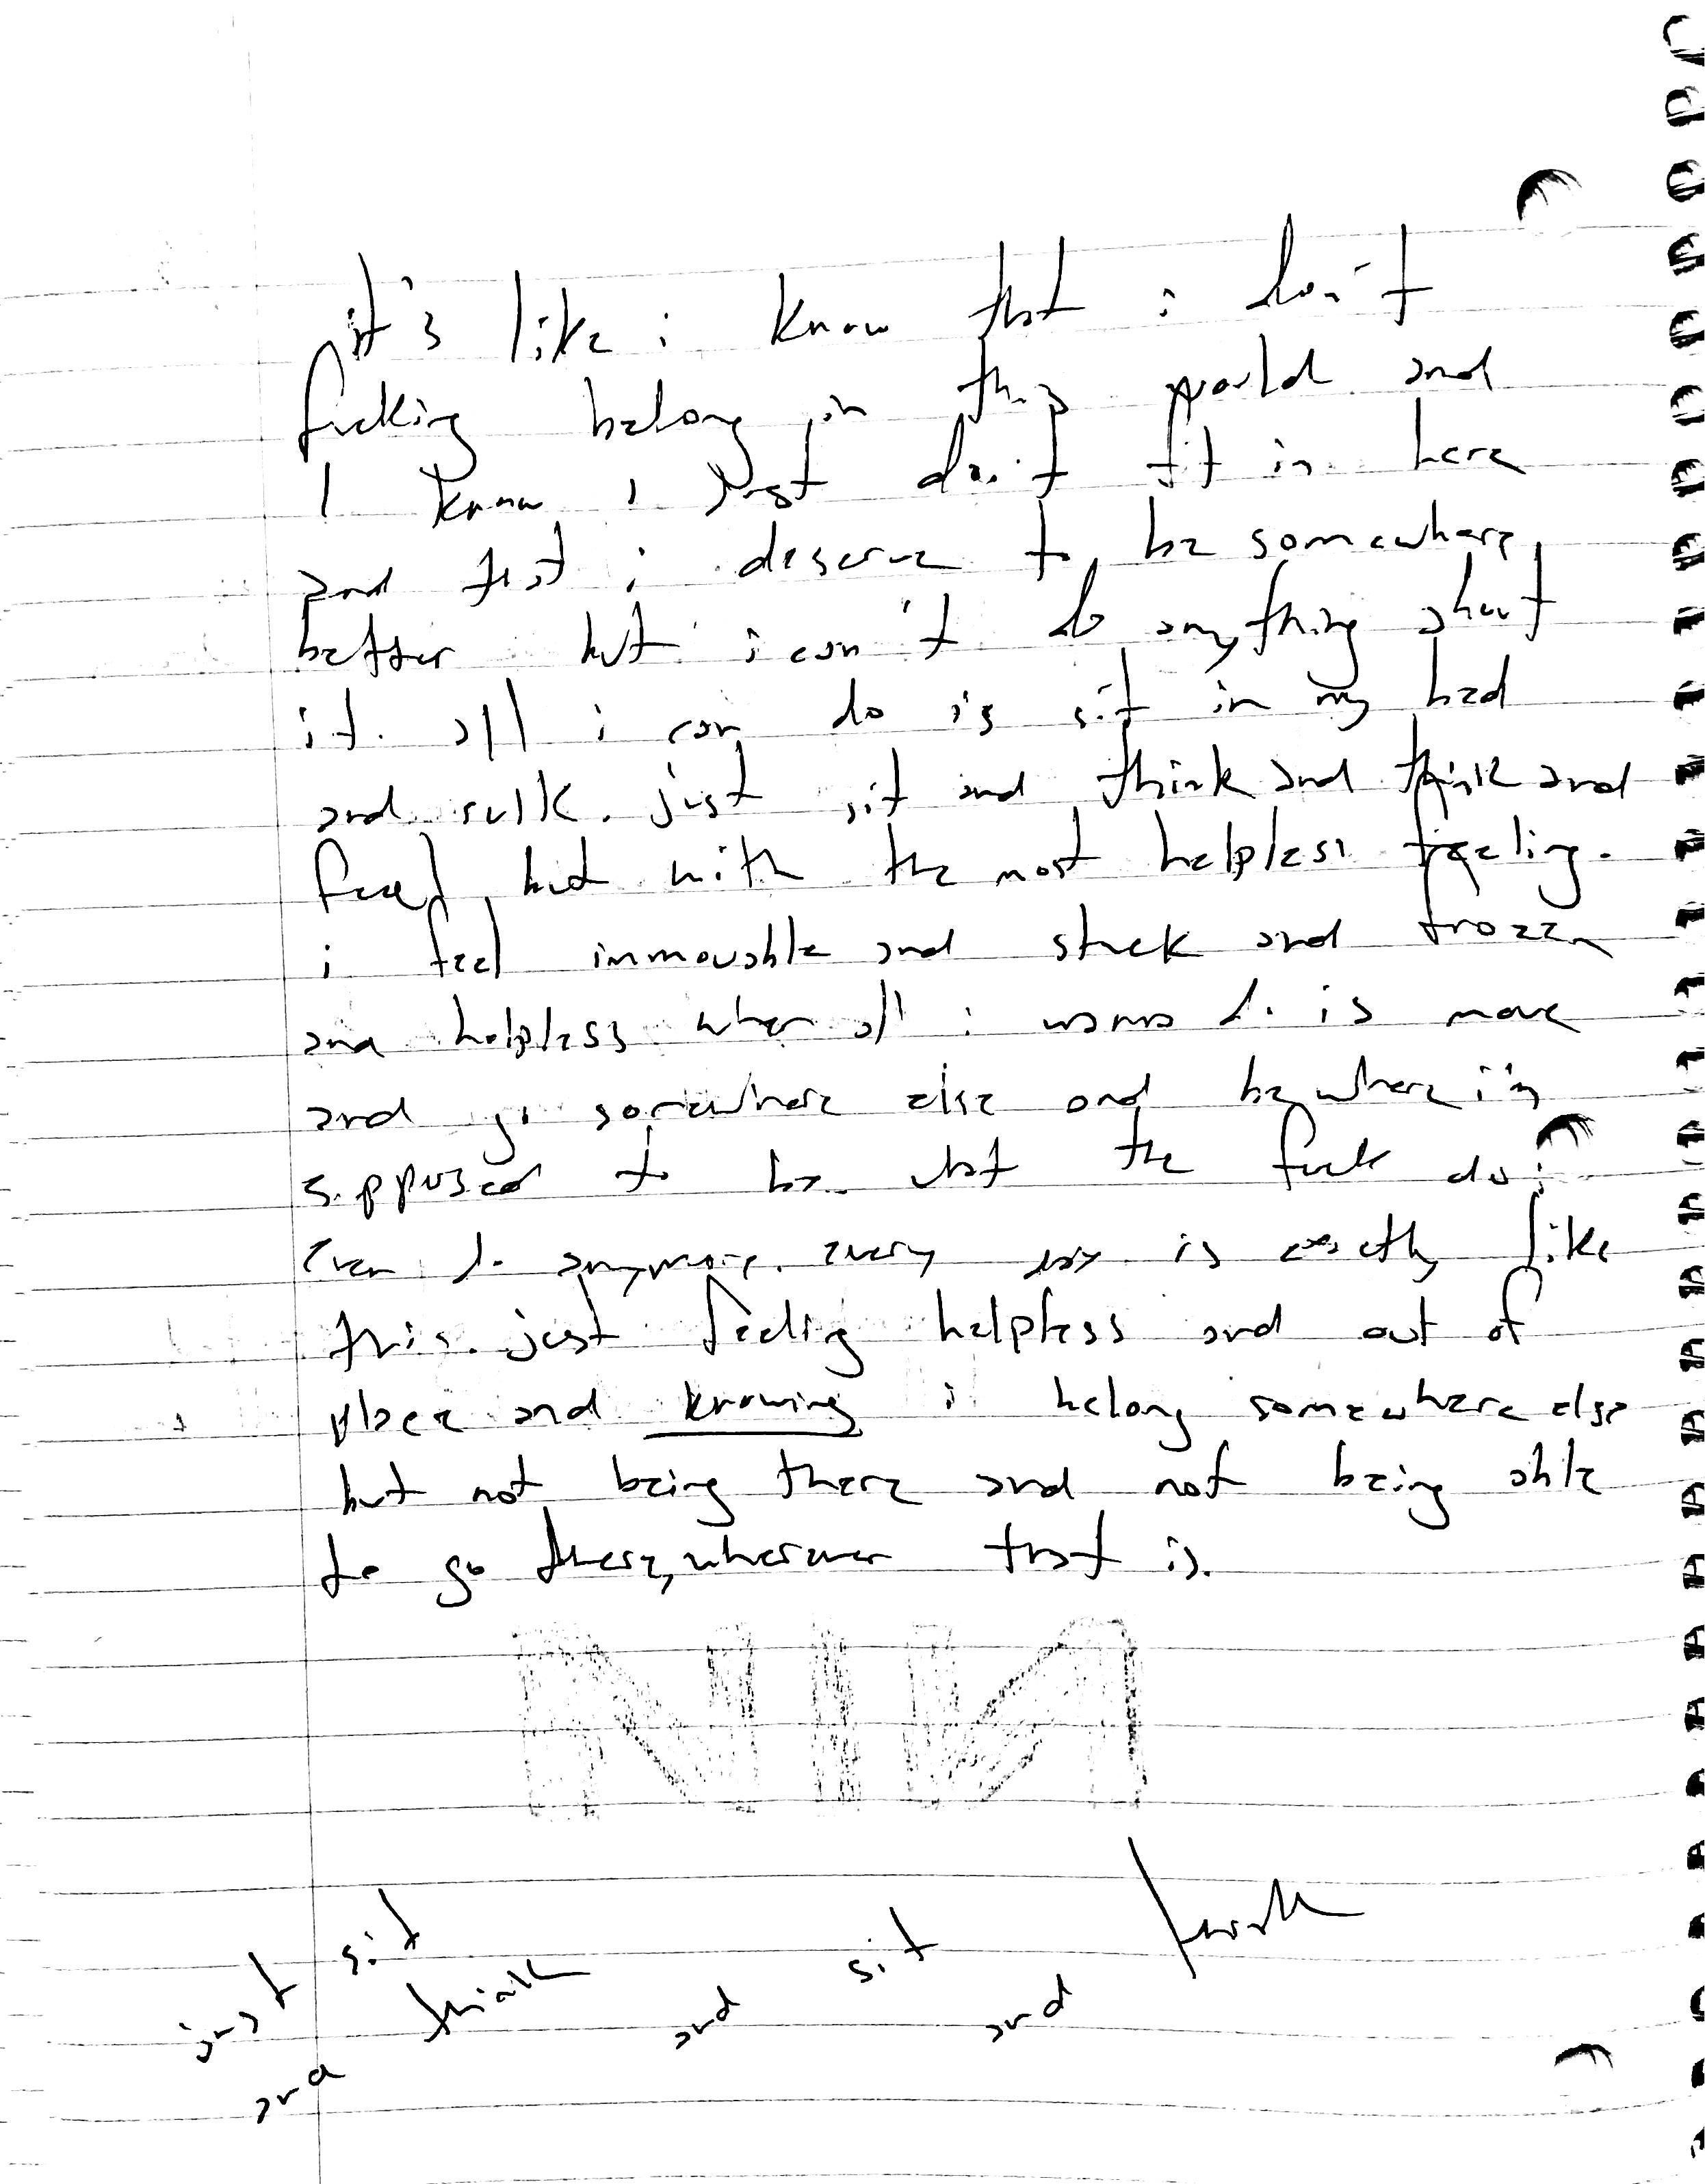 it's like i know that i don't
fucking belong in this world and
I know i just don't fit in here
and that i deserve to be somewhere
better but i can't do anything about
it. all i can do is sit in my bed
and sulk. just sit and think and think and
feel but with the most helpless feeling.
i feel immovable and stuck and frozen
and helpless when all i wanna do is move
and go somewhere else and be where i'm
supposed to be. what the fuck do i
even do anymore. every day is exactly like
this. just feeling helpless and out of
place and knowing i belong somewhere else
but not being there and not being able
to go there, wherever that is.
NIN
just sit and think and sit and think